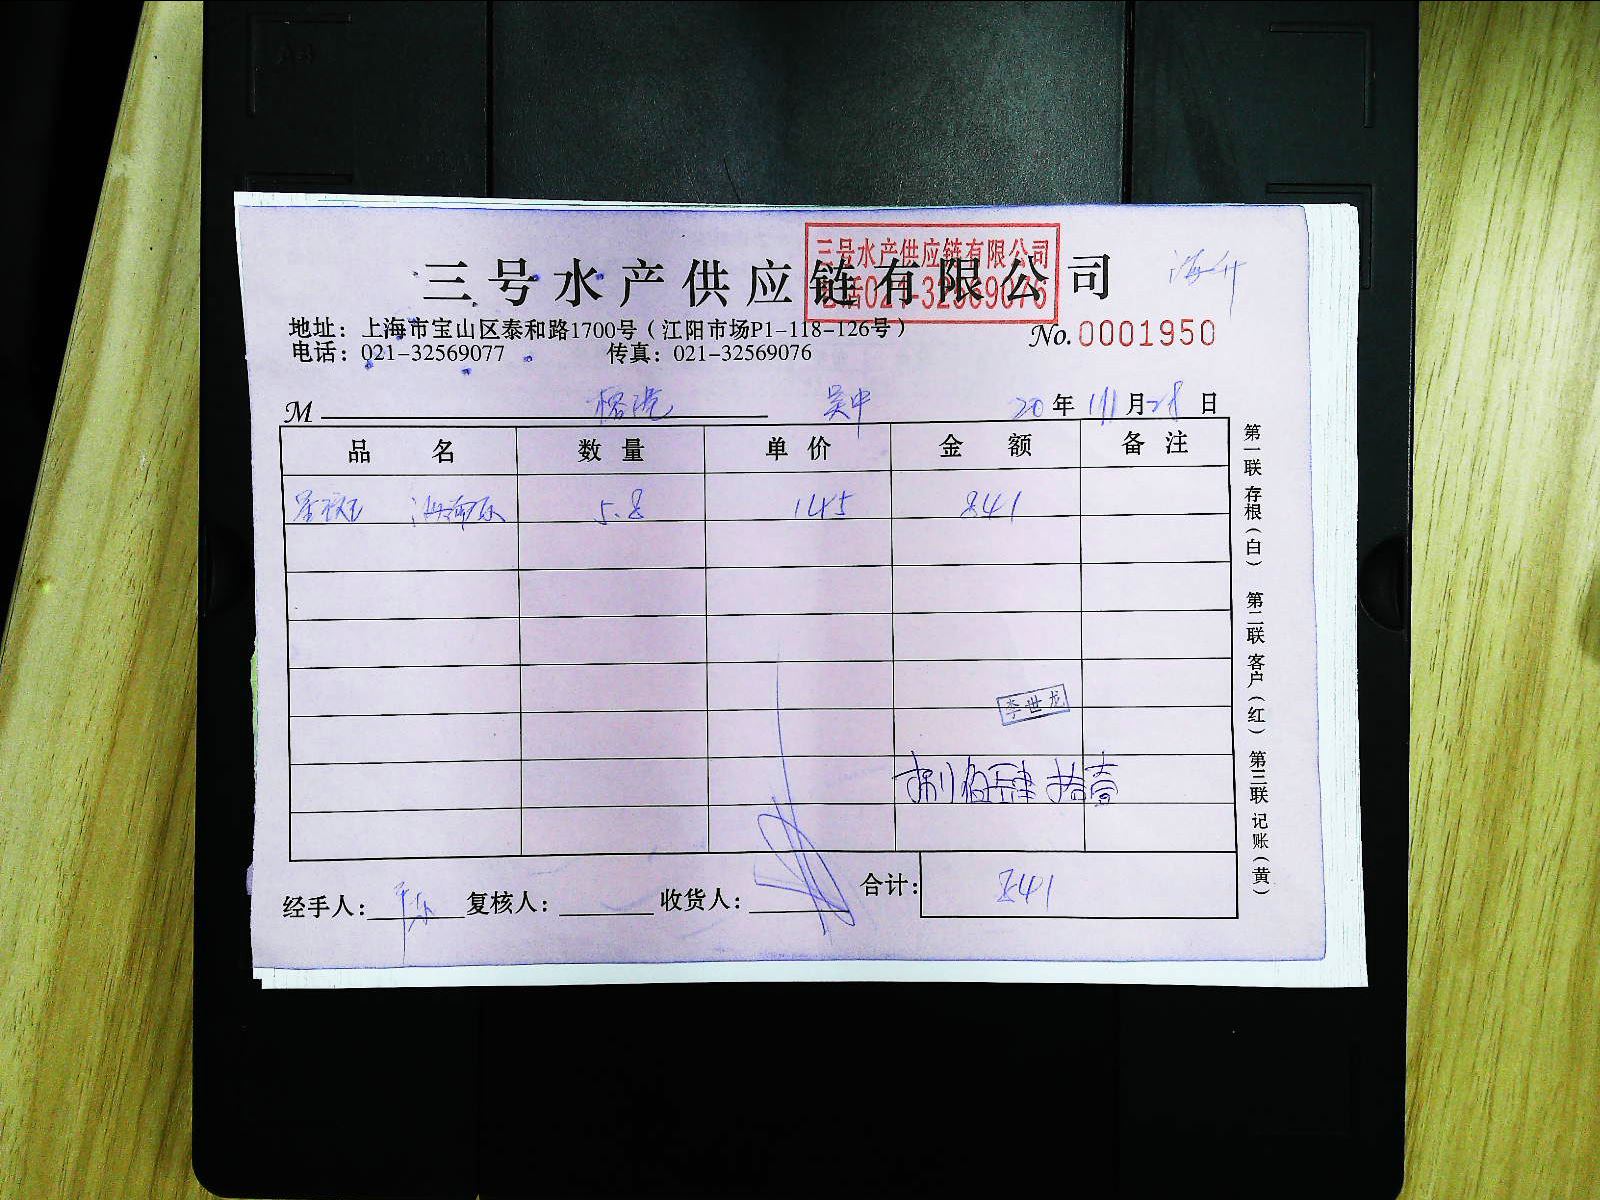 三号水产供应链有限公司
三号水产供应链有限公司
电话021-32569076
地址：上海市宝山区泰和路1700号（江阳市场P1-118-126号）
No.0001950
电话：021-32569077 传真：021-32569076
M 吴中 20年11月28日
品名 数量 单价 金额 备注
5.8 145 841
李世龙
捌佰肆拾壹
经手人： 复核人： 收货人： 合计： 841
第一联存根（白） 第二联客户（红） 第三联记账（黄）